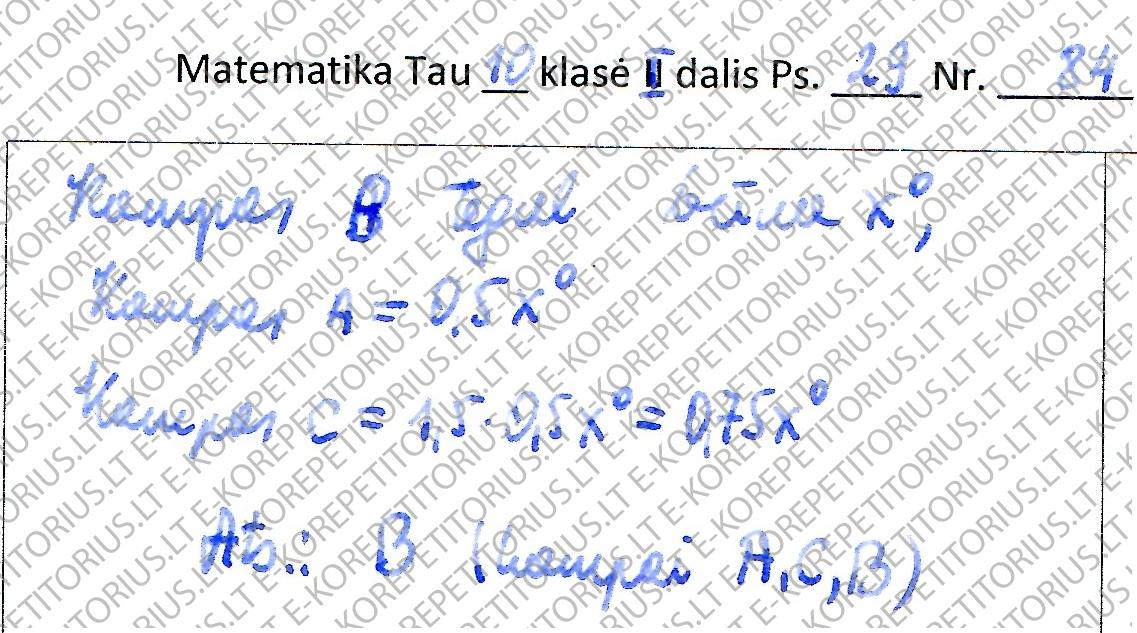 Matematika Tau 10 klasė II dalis Ps. 29 Nr. 84
Kampas B Tegul būna x°,
Kampas A = 0,5x°
Kampas C = 1,5·0,5x° = 0,75x°
Ats.: B (kampai A,C,B)
E-KOREPETITORIUS.LT